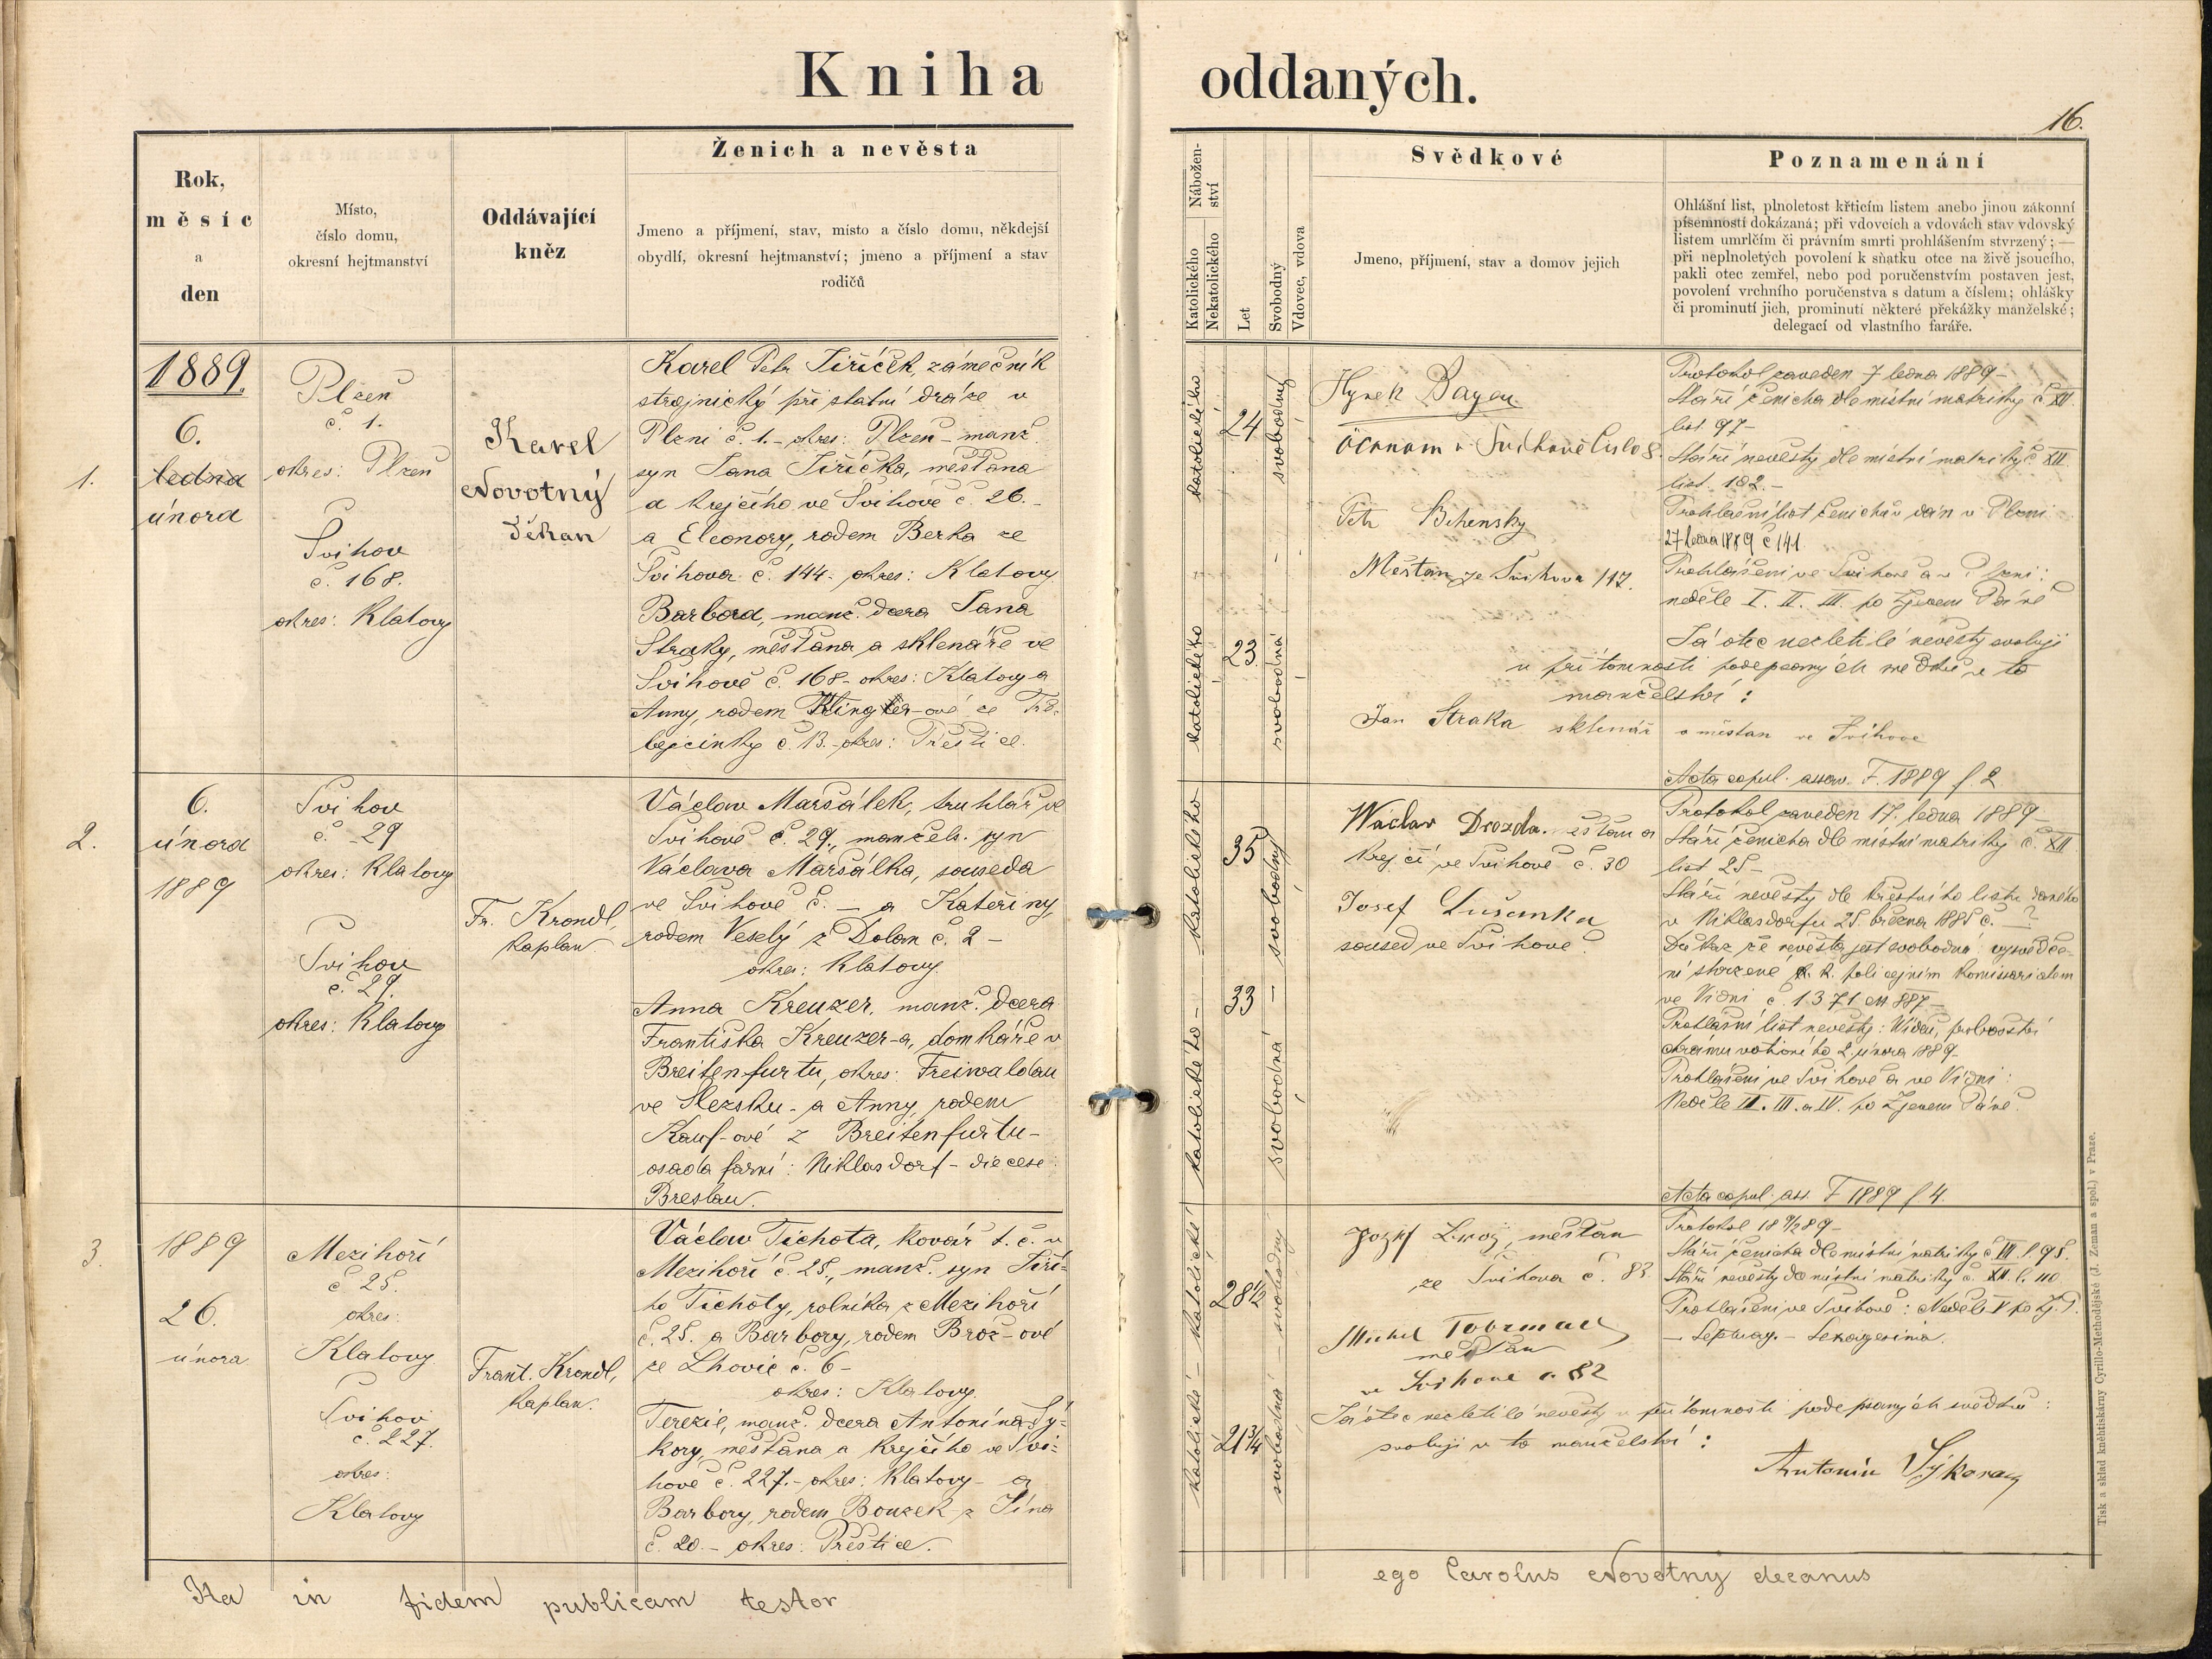 Kniha oddaných.
16.
Rok,
měsíc
a
den
Místo,
číslo domu,
okresní hejtmanství
Oddávající
kněz
Ženich a nevěsta
Jmeno a příjmení, stav, místo a číslo domu, někdejší
obydlí, okresní hejtmanství; jmeno a příjmení a stav
rodičů
Nábožen-
ství
Katolického
Nekatolického
Let
Svobodný
Vdovec, vdova
Svědkové
Jmeno, příjmení, stav a domov jejich
Poznamenání
Ohlášní list, plnoletost křticím listem anebo jinou zákonní
písemností dokázaná; při vdovcích a vdovách stav vdovský
listem umrlčím či právním smrti prohlášením stvrzený; —
při neplnoletých povolení k sňatku otce na živě jsoucího,
pakli otec zemřel, nebo pod poručenstvím postaven jest,
povolení vrchního poručenstva s datum a číslem; ohlášky
či prominutí jich, prominutí některé překážky manželské;
delegací od vlastního faráře.
1.
1889.
6.
ledna
února
Plzeň
č. 1.
okres: Plzeň
Švihov
č. 168.
okres: Klatovy
Karel
Novotný
Děkan
Karel Petr Jiříček, zámečník
strojnický při statní dráze v
Plzni č. 1.- okres: Plzeň - manž.
syn Jana Jiříčka, měšťana
a krejčího ve Švihově č. 26.-
a Eleonory, rodem Berka ze
Švihova č. 144- okres: Klatovy
Barbora, manž. dcera Jana
Straky, měšťana a sklenáře ve
Švihově č. 168- okres: Klatovy a
Anny, rodem
č. 13.- okres: Přeštice.
katolického
24
svobodný
katolického
23
svobodná
Hynek
ve Švihově
Petr
Měšťan ze Švihova 117.
Protokol zaveden 7 ledna 1889-
Stáří ženicha dle místní matriky č. XII
list 97-
Stáří nevěsty dle místní matriky č. XII
list. 182.-
Prohlašní list ženichův dán v Plzni
27 ledna 1889 č 141
Prohlášeni ve Švihově a v Plzni:
neděle I. II. III. po Zjevení Páně
Já otec nezletilé nevěsty svoluji
v přítomnosti podepsaných svědků v to
manželství:
Jan Straka sklenář a měšťan ve Švihově
Acta copul. asserv. F. 1889 f. 2
2.
6.
února
1889
Švihov
č. 29
okres: Klatovy
Švihov
č. 29.
okres: Klatovy
Fr. Krondl,
kaplan
Václav Maršálek, truhlář ve
Švihově č. 29., manžels. syn
Václava Maršálka, souseda
ve Švihově č. — a Kateřiny,
rodem Veselý z Dolan č. 2 -
okres: Klatovy.
Anna Kreuzer, manž. dcera
Františka Kreuzer-a, domkáře v
Breitenfurtu, okres: Freiwaldau
ve Slezsku - a Anny, rodem
Kauf-ové z Breitenfurtu -
osada farní: Niklasdorf - diecese:
Breslau.
katolického
35
svobodný
katolického
33
svobodná
Wáclav Drozda. měšťan a
krejčí ve Švihově č. 30
Josef
soused ve Švihově
Protokol zaveden 17. ledna 1889-
Stáří ženicha dle místní matriky č. XII
list 25-
Stáří nevěsty dle křestního listu daného
v Niklasdorfu 25. března 1885 č. — ?
Důkaz že nevěsta jest svobodná: vysvědče-
ní stvrzené k. k. policejním komissariatem
ve Vídni č. 1371
Prohlašní list nevěsty: Wídeň, probošství
chrámu votivního 2. února 1889-
Prohlášeni ve Švihově a ve Vídni:
Neděle II. III. a IV. po Zjevení Páně.
Acta copul. ass. F 1889 f. 4.
3.
1889
26.
února
Mezihoří
č 25.
okres:
Klatovy
Švihov
č. 227.
okres:
Klatovy
Frant. Krondl,
kaplan.
Václav Tichota, kovář t. č. v
Mezihoří č. 25., manž. syn Jiří-
ho Tichoty, rolníka z Mezihoří
č. 25. a Barbory, rodem Brož-ové
ze Lhovic č. 6-
okres: Klatovy.
Terezie, manž. dcera Antonína Sý-
kory, měšťana a krejčího ve Švi-
hově č. 227.- okres: Klatovy - a
Barbory, rodem Bouzek z Jína
č. 20.- okres: Přeštice.
katolické
28 1/2
svobodný
katolické
21 3/4
svobodná
měšťan
ze Švihova č. 83
měšťan
ve Švihově č. 82
Protokol
Stáří ženicha dle místní matriky č. XII l. 95.
Stáří nevěsty dle místní matriky č. XII l. 110
Prohlášeni ve Švihově: Neděle V po Zj. P.
- Septuag. - Sexagesima.
Já otec nezletilé nevěsty v přítomnosti podepsaných svědků:
svoluji v to manželství:
Antonín Sýkora
Ita in fidem publicam testor
ego Carolus Novotny decanus
Tisk a sklad kněhtiskárny Cyrillo-Methodějské (J. Zeman a spol.) v Praze.